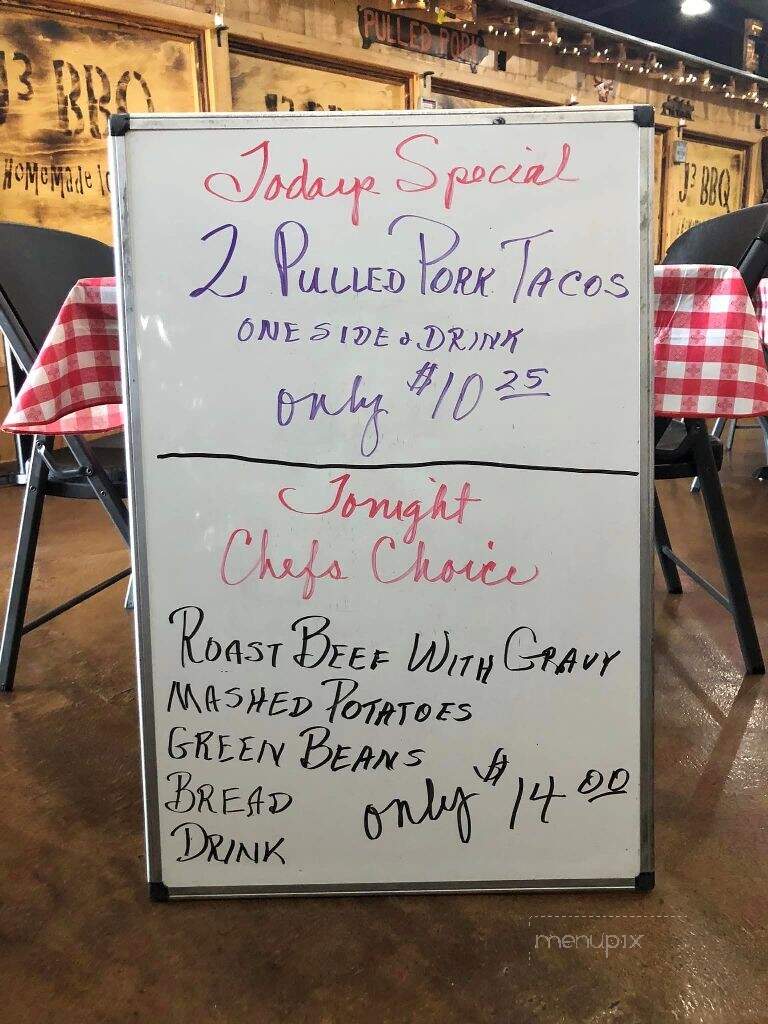 PULLED PORK
J3 BBQ
HOMEMADE
J3 BBQ
Todays Special
2 PULLED PORK TACOS
ONE SIDE & DRINK
only $10 25
Tonight
Chefs Choice
ROAST BEEF WITH GRAVY
MASHED POTATOES
GREEN BEANS
BREAD
DRINK
only $14 00
menupix